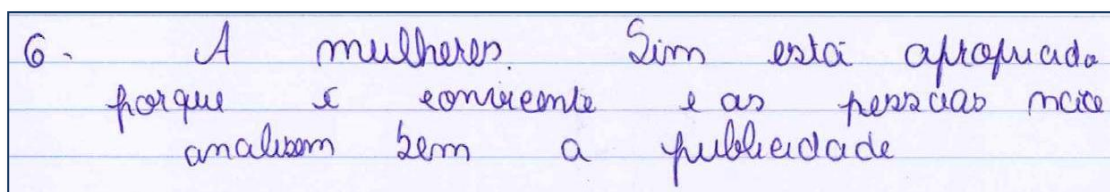 6- A mulheres. Sim está apropriado
porque é convicente e as pessoas não
analisam bem a publicidade